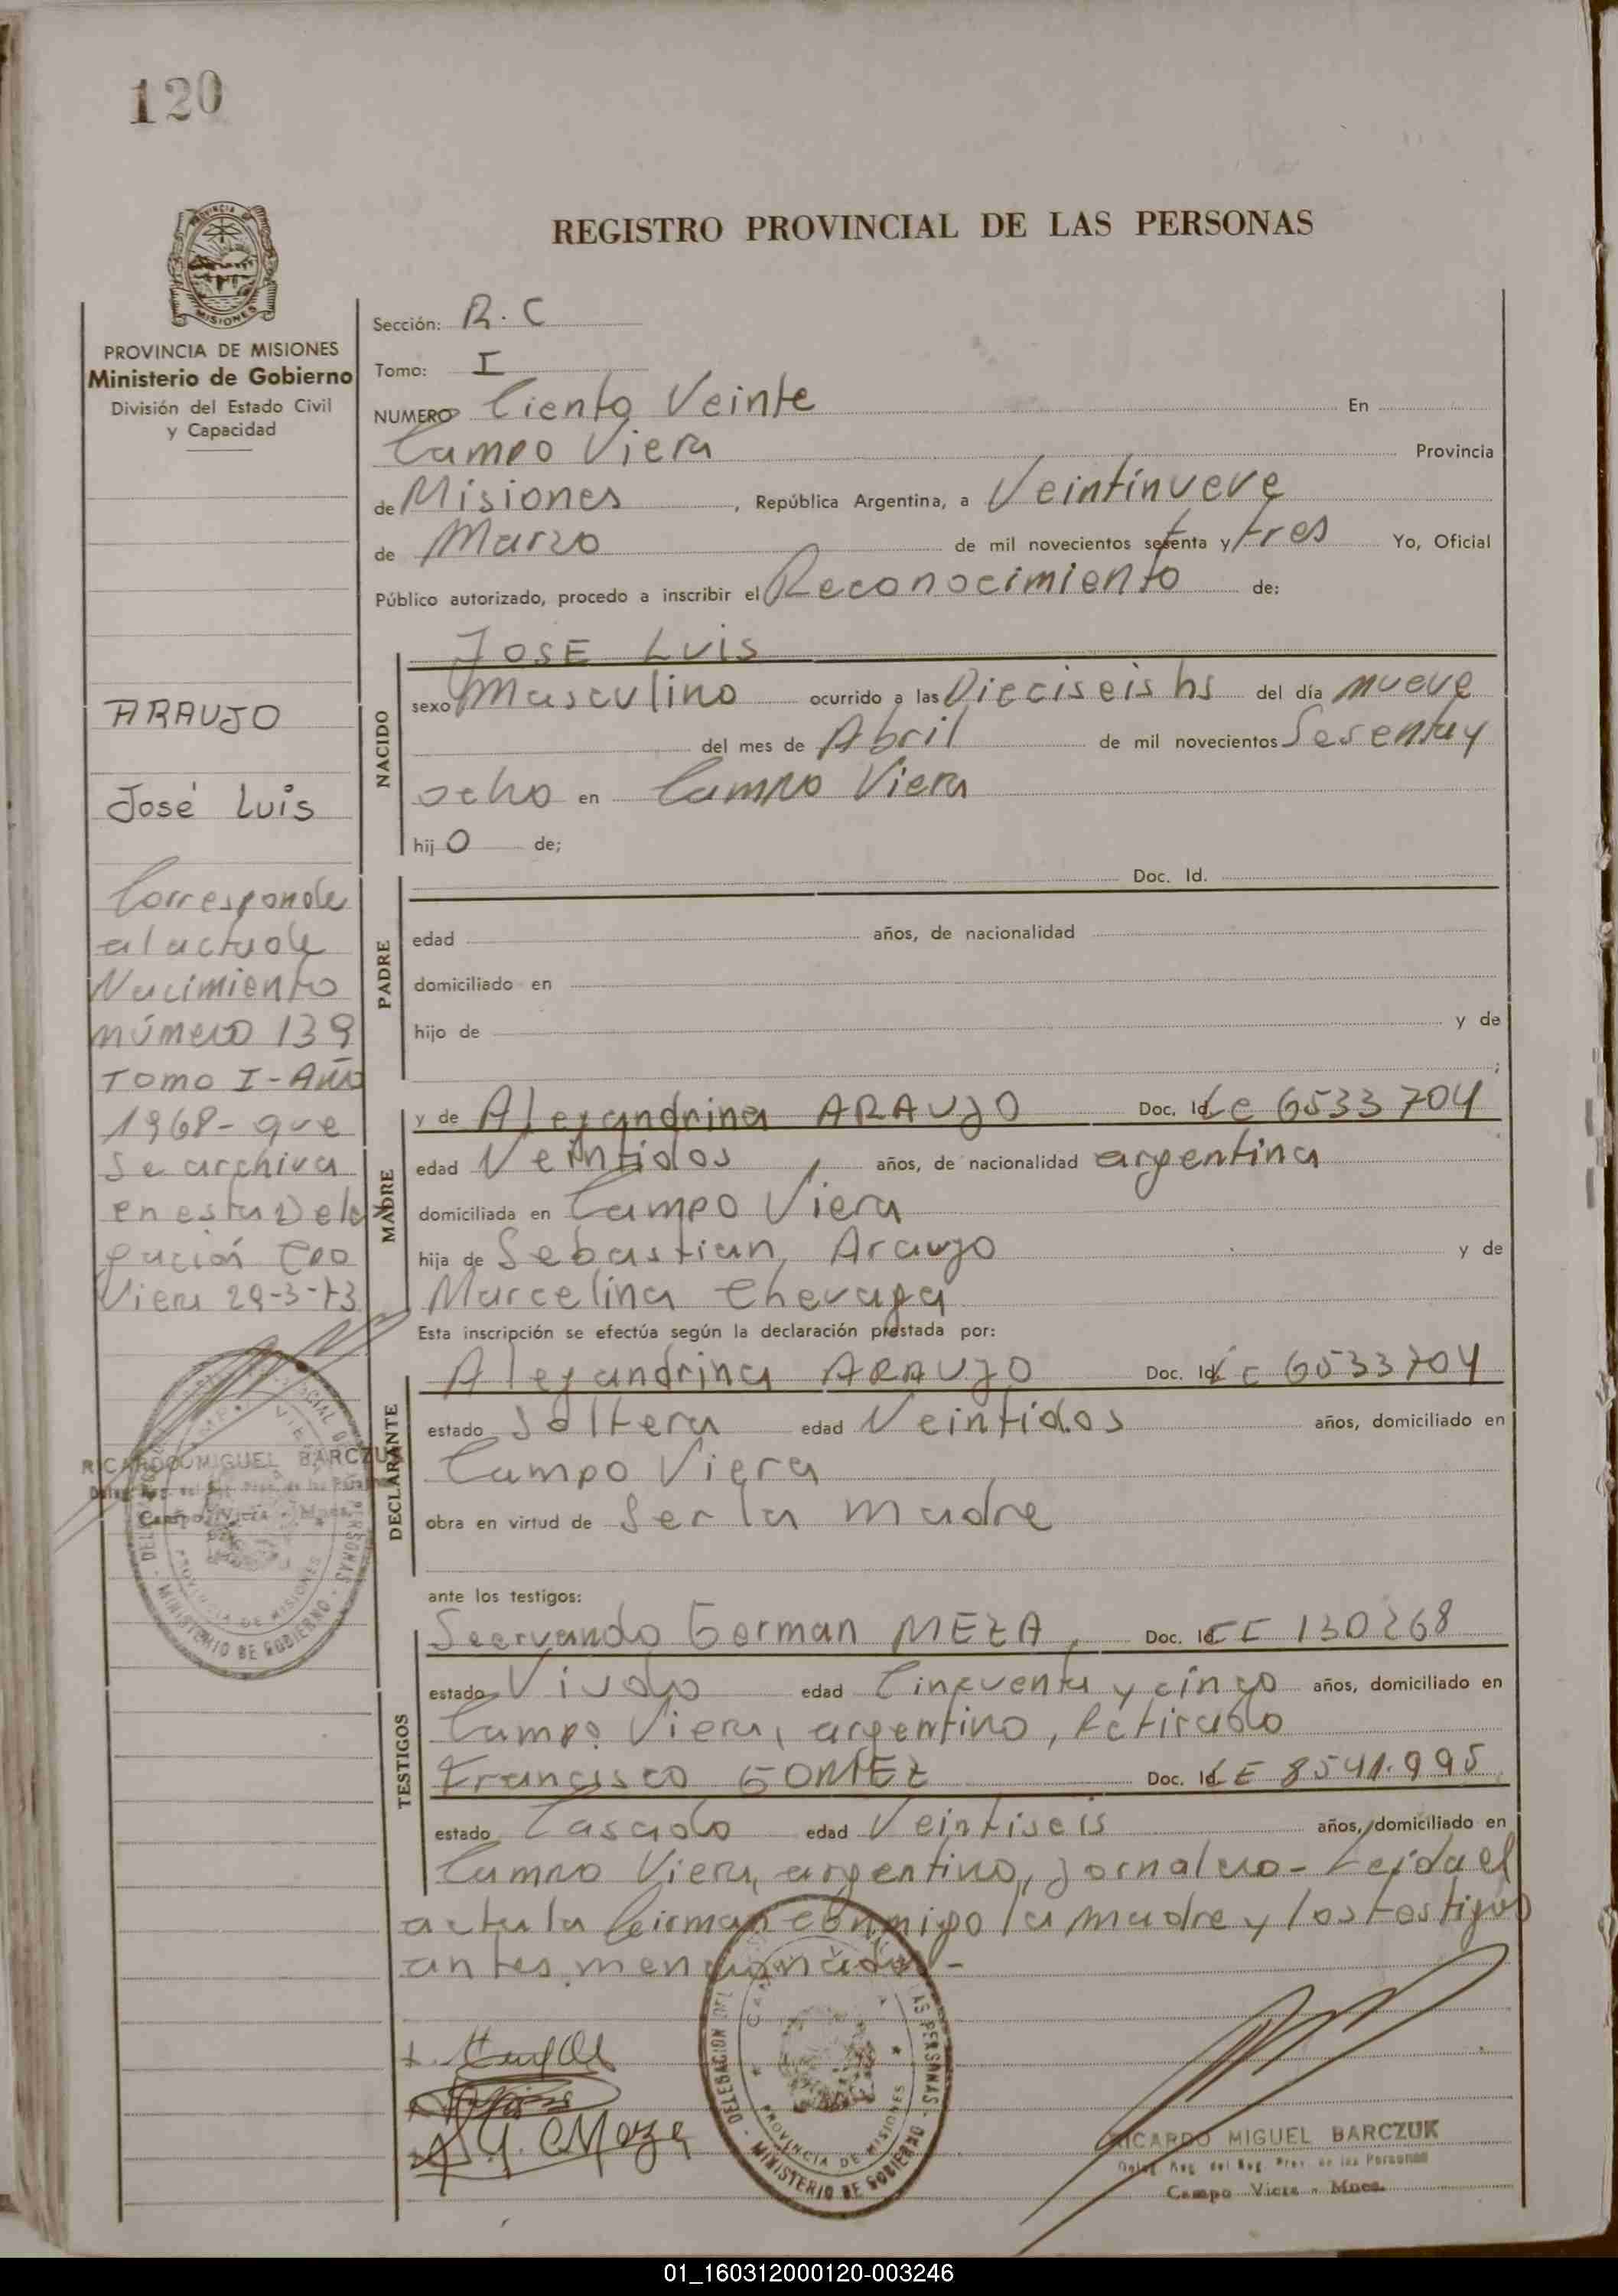 120
REGISTRO PROVINCIAL DE LAS PERSONAS
PROVINCIA DE MISIONES
Ministerio de Gobierno
División del Estado Civil
y Capacidad
ARAUJO
José Luis
Corresponde
al acta de
Nacimiento
número 139
Tomo I - Año
1968 - que
se archiva
en esta Dele
gación Cpo
Viera 29-3-73
RICARDO MIGUEL BARCZUK
Campo Viera - Mnes.
Sección: R.C
Tomo: I
NUMERO Ciento Veinte En
Campo Viera Provincia
de Misiones, República Argentina, a Veintinueve
de Marzo de mil novecientos setenta y tres Yo, Oficial
Público autorizado, procedo a inscribir el Reconocimiento de:
NACIDO
JOSE LUIS
sexo Masculino ocurrido a las Dieciseis hs del día nueve
del mes de Abril de mil novecientos Sesenta y
ocho en Campo Viera
hijo de;
PADRE
Doc. Id.
edad años, de nacionalidad
domiciliado en
hijo de y de
;
MADRE
y de Alejandrina ARAUJO Doc. Id. LC 6533704
edad Veintidos, años, de nacionalidad argentina
domiciliada en Campo Viera
hija de Sebastian Araujo y de
Marcelina Chevaga
Esta inscripción se efectúa según la declaración prestada por:
DECLARANTE
Alejandrina ARAUJO Doc. Id. LC 6533704
estado Soltera edad Veintidos años, domiciliado en
Campo Viera
obra en virtud de Ser la madre
ante los testigos:
TESTIGOS
Seervando German MEZA, Doc. Id. 130268
estado Viudo edad Cincuenta y cinco años, domiciliado en
Campo Viera, argentino, Retirado
Francisco GOMEZ Doc. Id. LE 8541.995
estado Casado edad Veintiseis años, domiciliado en
Campo Viera, argentino, jornalero - Leida el
acta la firman conmigo la madre y los testigos
antes mencionados -
S.G. Meza
DELEGACION DEL AS PERSONAS
PROVINCIA DE MISIONES
MINISTERIO DE GOBIERNO
RICARDO MIGUEL BARCZUK
Deleg. Reg. del Reg. Prov. de las Personas
Campo Viera - Mnes.
01_160312000120-003246